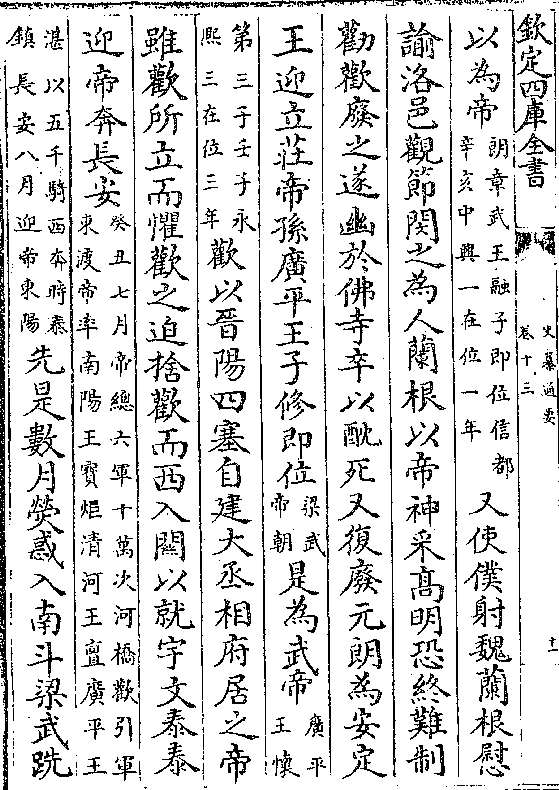 欽定四庫全書
史纂通要
卷十三
十一
以為帝朗章武王融子即位信都辛亥中興一在位一年又使僕射魏蘭根慰
諭洛邑觀節閔之為人蘭根以帝神采髙明恐終難制
勸歡廢之遂幽於佛寺卒以酖死又復廢元朗為安定
王迎立莊帝孫廣平王子修即位梁武帝朝是為武帝廣平王懷
第三子壬子永熙三在位三年歡以晉陽四塞自建大丞相府居之帝
雖歡所立而懼歡之迫捨歡而西入關以就宇文泰泰
迎帝奔長安癸丑七月帝總六軍十萬次河橋歡引軍東渡帝率南陽王寶炬清河王亶廣平王
湛以五千騎西奔時泰鎮長安八月迎帝東陽先是數月熒惑入南斗梁武跣